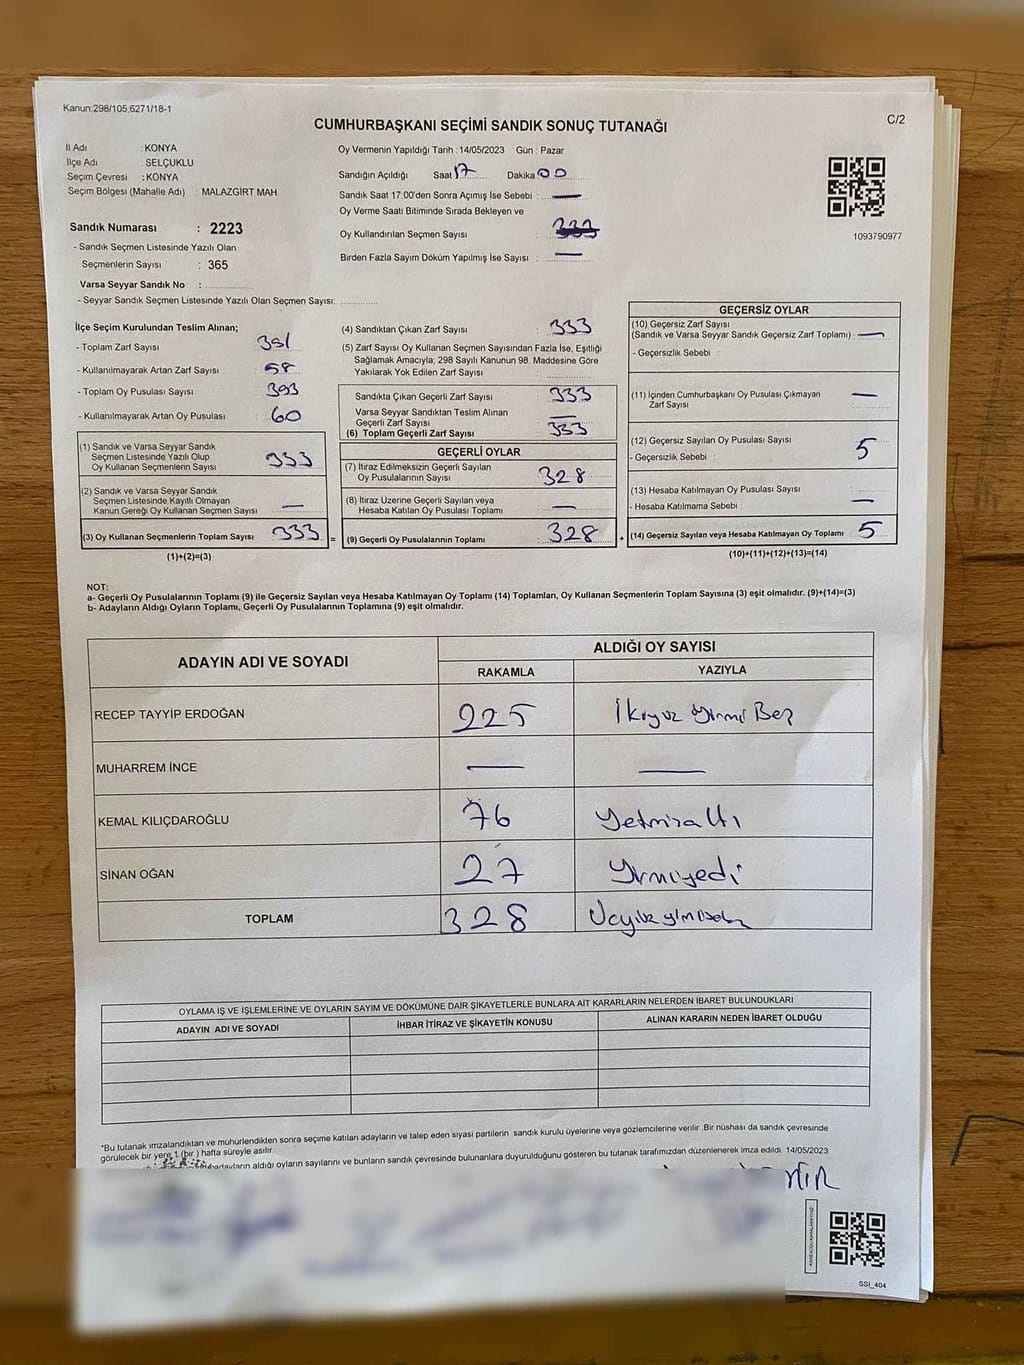 Kanun:298/105,6271/18-1
C/2
CUMHURBAŞKANI SEÇİMİ SANDIK SONUÇ TUTANAĞI
İl Adı : KONYA
İlçe Adı : SELÇUKLU
Seçim Çevresi : KONYA
Seçim Bölgesi (Mahalle Adı) : MALAZGİRT MAH
Sandık Numarası : 2223
- Sandık Seçmen Listesinde Yazılı Olan
Seçmenlerin Sayısı : 365
Varsa Seyyar Sandık No :
- Seyyar Sandık Seçmen Listesinde Yazılı Olan Seçmen Sayısı:
Oy Vermenin Yapıldığı Tarih : 14/05/2023 Gün : Pazar
Sandığın Açıldığı Saat 17 Dakika 00
Sandık Saat 17:00'den Sonra Açımış İse Sebebi : —
Oy Verme Saati Bitiminde Sırada Bekleyen ve
Oy Kullandırılan Seçmen Sayısı : 333
Birden Fazla Sayım Döküm Yapılmış İse Sayısı : —
1093790977
İlçe Seçim Kurulundan Teslim Alınan;
- Toplam Zarf Sayısı : 391
- Kullanılmayarak Artan Zarf Sayısı : 58
- Toplam Oy Pusulası Sayısı : 393
- Kullanılmayarak Artan Oy Pusulası : 60
(1) Sandık ve Varsa Seyyar Sandık
Seçmen Listesinde Yazılı Olup
Oy Kullanan Seçmenlerin Sayısı 333
(2) Sandık ve Varsa Seyyar Sandık
Seçmen Listesinde Kayıtlı Olmayan
Kanun Gereği Oy Kullanan Seçmen Sayısı —
(3) Oy Kullanan Seçmenlerin Toplam Sayısı 333
(1)+(2)=(3)
(4) Sandıktan Çıkan Zarf Sayısı : 333
(5) Zarf Sayısı Oy Kullanan Seçmen Sayısından Fazla İse, Eşitliği
Sağlamak Amacıyla; 298 Sayılı Kanunun 98. Maddesine Göre
Yakılarak Yok Edilen Zarf Sayısı :
Sandıkta Çıkan Geçerli Zarf Sayısı : 333
Varsa Seyyar Sandıktan Teslim Alınan
Geçerli Zarf Sayısı : —
(6) Toplam Geçerli Zarf Sayısı : 333
GEÇERLİ OYLAR
(7) İtiraz Edilmeksizin Geçerli Sayılan
Oy Pusulalarının Sayısı : 328
(8) İtiraz Üzerine Geçerli Sayılan veya
Hesaba Katılan Oy Pusulası Toplamı : —
= (9) Geçerli Oy Pusulalarının Toplamı : 328
GEÇERSİZ OYLAR
(10) Geçersiz Zarf Sayısı
(Sandık ve Varsa Seyyar Sandık Geçersiz Zarf Toplamı) : —
- Geçersizlik Sebebi :
(11) İçinden Cumhurbaşkanı Oy Pusulası Çıkmayan
Zarf Sayısı : —
(12) Geçersiz Sayılan Oy Pusulası Sayısı : 5
- Geçersizlik Sebebi :
(13) Hesaba Katılmayan Oy Pusulası Sayısı :
- Hesaba Katılmama Sebebi : —
+ (14) Geçersiz Sayılan veya Hesaba Katılmayan Oy Toplamı : 5
(10)+(11)+(12)+(13)=(14)
NOT:
a- Geçerli Oy Pusulalarının Toplamı (9) ile Geçersiz Sayılan veya Hesaba Katılmayan Oy Toplamı (14) Toplamları, Oy Kullanan Seçmenlerin Toplam Sayısına (3) eşit olmalıdır. (9)+(14)=(3)
b- Adayların Aldığı Oyların Toplamı, Geçerli Oy Pusulalarının Toplamına (9) eşit olmalıdır.
ADAYIN ADI VE SOYADI
ALDIĞI OY SAYISI
RAKAMLA YAZIYLA
RECEP TAYYİP ERDOĞAN 225 İkiyüz Yirmi Beş
MUHARREM İNCE — —
KEMAL KILIÇDAROĞLU 76 Yetmişaltı
SİNAN OĞAN 27 Yirmiyedi
TOPLAM 328 Üçyüz yirmisekiz
OYLAMA İŞ VE İŞLEMLERİNE VE OYLARIN SAYIM VE DÖKÜMÜNE DAİR ŞİKAYETLERLE BUNLARA AİT KARARLARIN NELERDEN İBARET BULUNDUKLARI
ADAYIN ADI VE SOYADI İHBAR İTİRAZ VE ŞİKAYETİN KONUSU ALINAN KARARIN NEDEN İBARET OLDUĞU
*Bu tutanak imzalandıktan ve mühürlendikten sonra seçime katılan adayların ve talep eden siyasi partilerin sandık kurulu üyelerine veya gözlemcilerine verilir. Bir nüshası da sandık çevresinde
görülecek bir yere 1 (bir) hafta süreyle asılır.
adayların aldığı oyların sayılarını ve bunların sandık çevresinde bulunanlara duyurulduğunu gösteren bu tutanak tarafımızdan düzenlenerek imza edildi. 14/05/2023
SSI_404